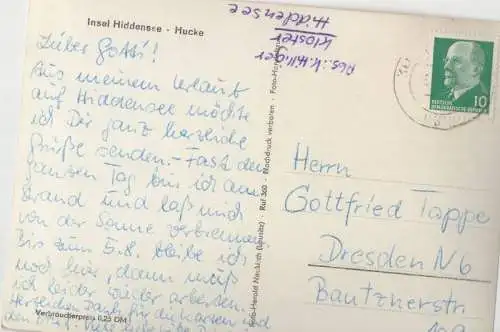 Insel Hiddensee - Hucke
Lieber Gottfr!
Aus meinem Urlaub
auf Hiddensee möchte
ich Dir ganz herzliche
Grüße senden. - Fast den
ganzen Tag bin ich am
Strand und laß mich
von der Sonne verbrennen.
Bis zum 5.8. bleibe ich
noch hier, dann muß
ich leider wieder arbeiten.
Herzlichen Dank für die Karten und
den
Verbraucherpreis 0,25 DM
Abs. V. Hilliger
Kloster
Hiddensee
Foto-Herold Neukirch (Lausitz) · Ruf 360 · Nachdruck verboten · Foto-Ho
10
DEUTSCHE
DEMOKRATISCHE REPUBLIK
Herrn
Gottfried Tappe
Dresden N6
Bautznerstr.